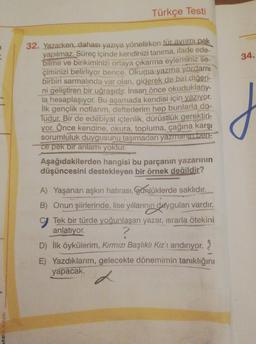 Türkçe Testi
32. Yazarken, dahası yazıya yönelirken tür ayrımı pek
yapılmaz. Süreç içinde kendinizi tanıma, ifade ede-
bilme ve birikiminizi ortaya çıkarma eyleminiz se-
çiminizi belirliyor bence. Okuma-yazma yordamı
birbiri sarmalında var olan, giderek de biri diğeri-
ni geliştiren bir uğraşıdır. İnsan önce okuduklarıy-
la hesaplaşıyor. Bu aşamada kendisi için yazıyor.
İlk gençlik notlarım, defterlerim hep bunlarla do-
ludur. Bir de edebiyat içtenlik, dürüstlük gerektiri-
yor. Önce kendine, okura, topluma, çağına karşı
sorumluluk duygusunu taşımadan yazmanın ben-
ce pek bir anlamı yoktur.
Aşağıdakilerden hangisi bu parçanın yazarının
düşüncesini destekleyen bir örnek değildir?
A) Yaşanan aşkın hatırası, günlüklerde saklıdır.
B) Onun şiirlerinde, lise yıllarının duyguları vardır.
C) Tek bir türde yoğunlaşan yazar, ısrarla ötekini
anlatıyor.
?
D) İlk öykülerim, Kırmızı Başlıklı Kız'ı andırıyor.
E) Yazdıklarım, gelecekte dönemimin tanıklığını
yapacak.
34.